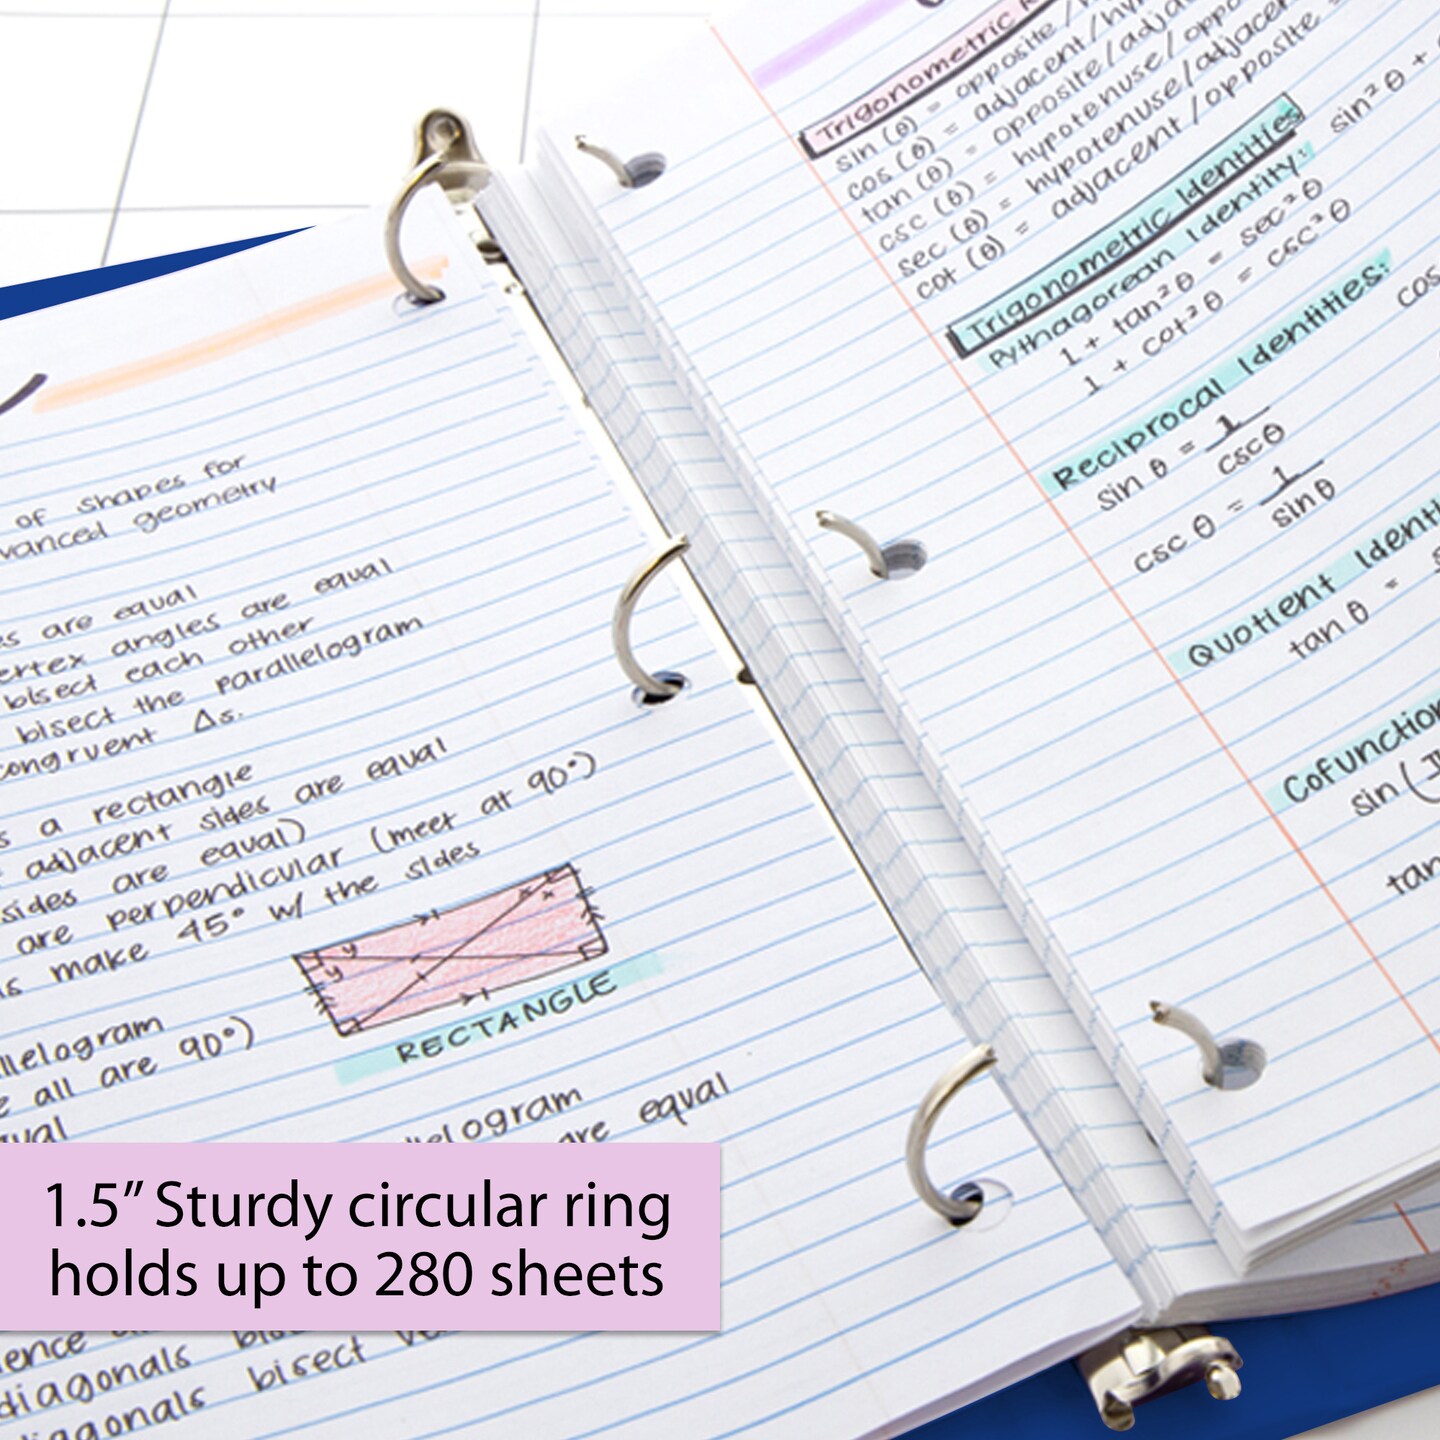 of shapes for
vanced geometry
es are equal
ertex angles are equal
bisect each other
bisect the parallelogram
congruent Δs.
s a rectangle
adjacent sides are equal
sides are equal)
are perpendicular (meet at 90°)
s make 45° w/ the sides
RECTANGLE
llelogram
e all are 90°)
qual
llelogram
are equal
1.5” Sturdy circular ring
holds up to 280 sheets
ience
diagonals
diagonals bisect
Trigonometric
sin (θ) = opposite/
cos (θ) = adjacent/hy
tan (θ) = opposite/adja
csc (θ) = hypotenuse/oppo
sec (θ) = hypotenuse/adjacen
cot (θ) = adjacent/opposite =
Trigonometric Identities
Pythagorean Identity: sin²θ +
1 + tan²θ = sec²θ
1 + cot²θ = csc²θ
Reciprocal Identities: cos
sin θ = 1
cscθ
csc θ = 1
sinθ
Quotient Identi
tan θ = s
Cofunction
sin (
tan